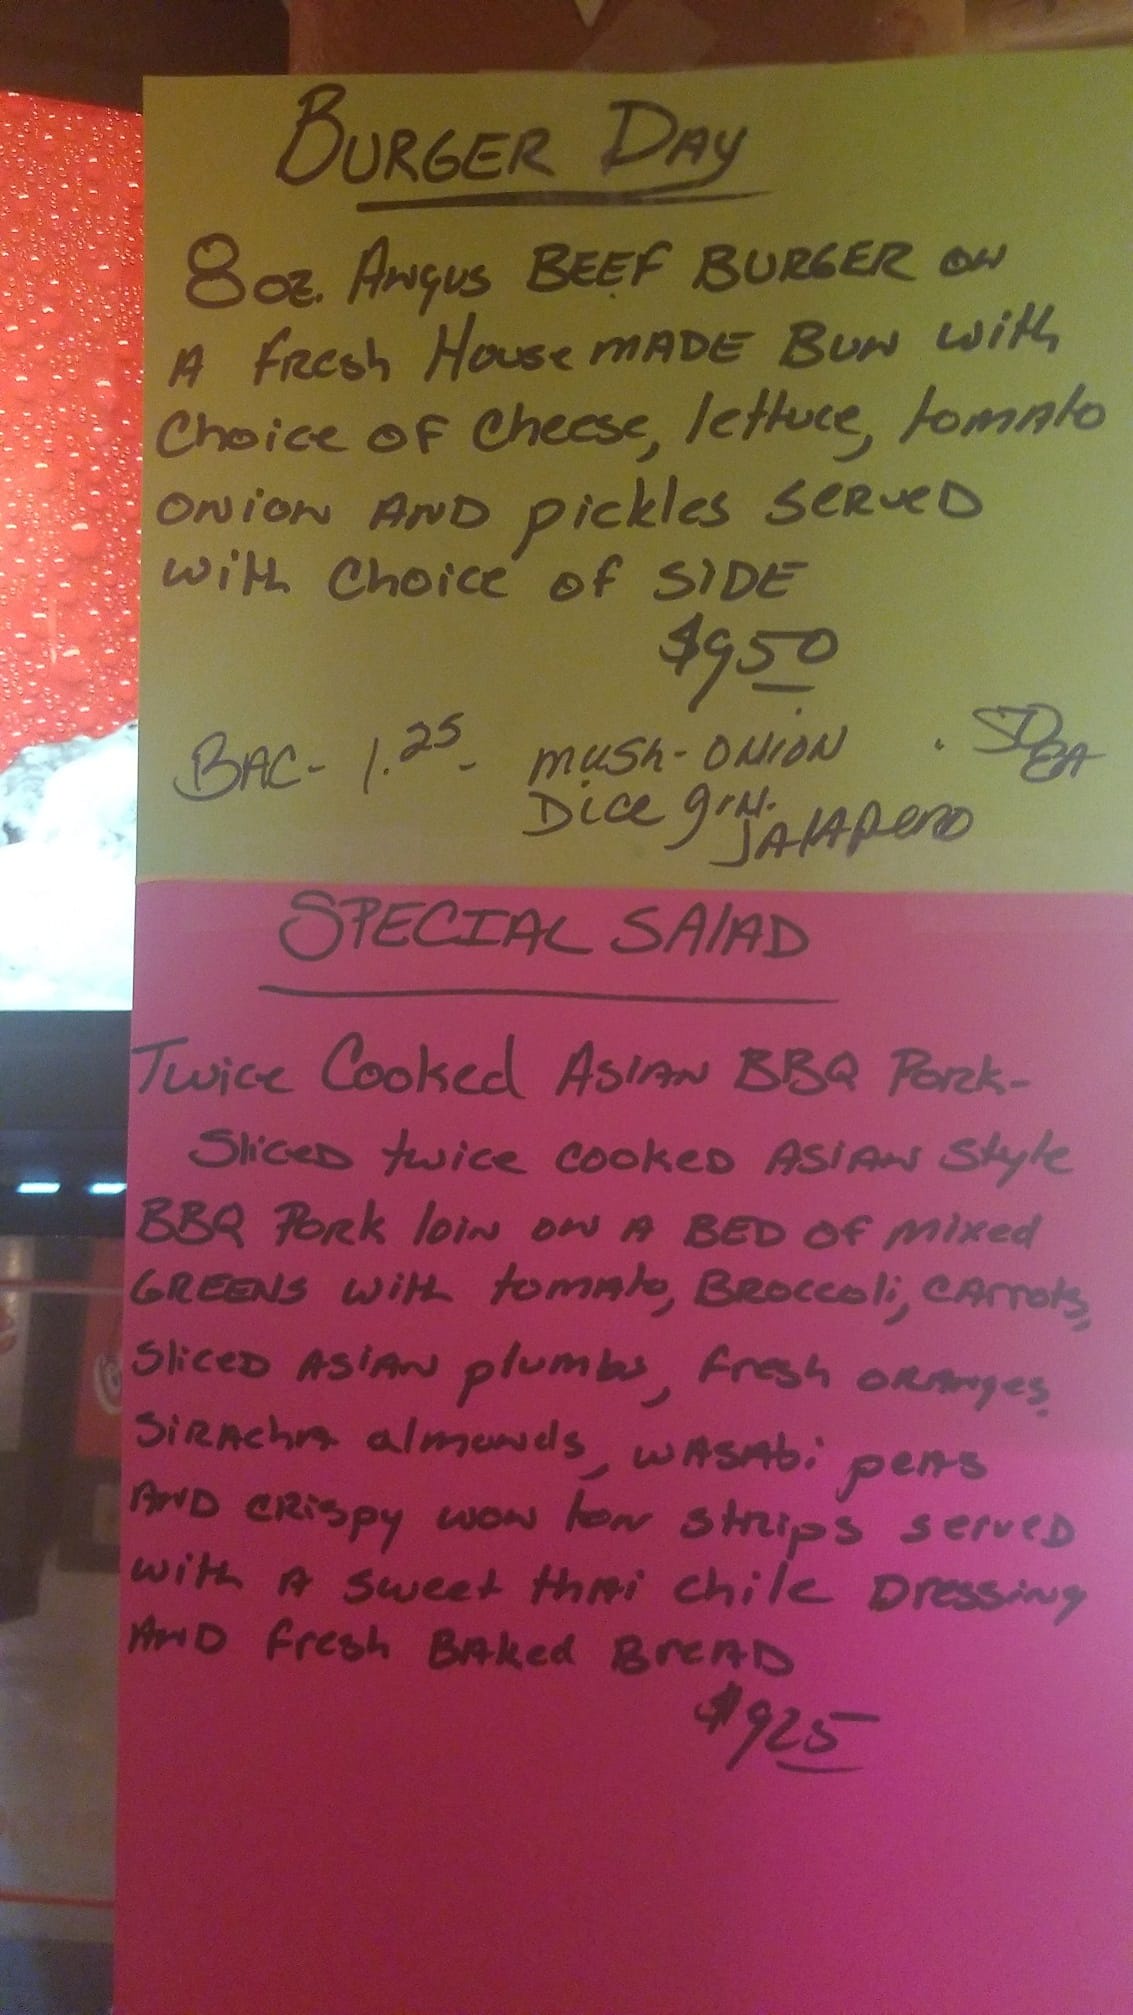 BURGER DAY
8oz. ANGUS BEEF BURGER ON
A fresh House MADE BUN with
Choice OF Cheese, lettuce, tomato
ONION AND pickles SERVED
with Choice of SIDE
$9.50
BAC- 1.25 - mush-ONION . 50 EA
Dice grn.
JALAPENO
SPECIAL SALAD
Twice Cooked ASIAN BBQ Pork-
Sliced twice cooked ASIAN Style
BBQ Pork loin ON A BED OF mixed
GREENS with tomato, BROCCOLi, CARROTS,
Sliced ASIAN plumbs, fresh ORANges,
SiRAchA almonds, WASAbi peas
AND CRispy WON ton strips served
with A sweet thai chile Dressing
AND fresh BAked BREAD
$9.25